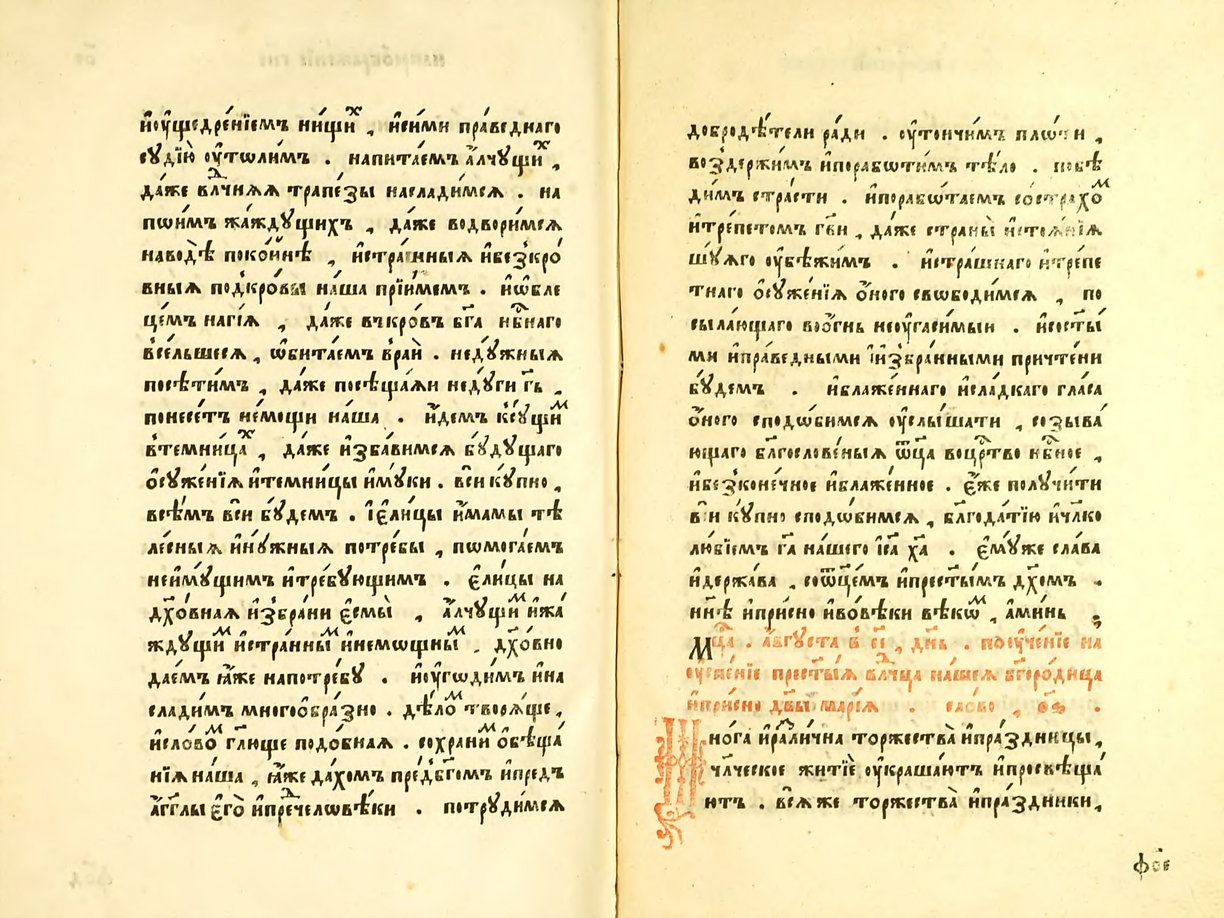 и҆оу҆щедре́нїемъ ни́щи́х , и҆си́ми пра́веднаго
сꙋдїю̀ оу҆то́лимъ . напита́емъ а҆́лчꙋщи́х ,
да́же влⷣчнѧѧ трапе́зы насладимсѧ . на
пѡи́мъ жа́ждꙋщихъ , да́же водвори́мсѧ
наводѣ̀ поко́йнѣ , и҆стра́нныѧ и҆безкро́
вныѧ подкро́вы на́ша прїи́мемъ . и҆ѡ҆бле
це́мъ наги́ѧ , да́же вчкро́въ бг҃а нбⷭ҇наго
все́льшесѧ , ѡ҆бита́емъ вра́й . недꙋ́жныѧ
посѣти́мъ , да́же посѣща́ѧи недꙋ́ги гь҃ ,
понесе́тъ не́мощи на́ша . и҆́демъ ксꙋ́щиⷨ
втемни́цаⷯ , да́же и҆зба́вимсѧ бꙋ́дꙋщаго
ѻ҆сꙋже́нїѧ и҆темни́цы и҆мꙋки . вси кꙋ́пно ,
всѣ́мъ вси бꙋ́демъ . і҆є҆ли́цы и҆́мамы тѣ
ле́сныѧ и҆нꙋ́жныѧ потре́бы , пѡмога́емъ
неи҆мꙋ́щимъ и҆тре́бꙋющимъ . є҆ли́цы на
дх҃о́внаѧ и҆збра́ни є҆смы̀ , а҆́лчꙋщиⷨ и҆жа́
ждꙋщиⷨ и҆стра́нныⷨ и҆немѡщныⷨ , дх҃о́вно
дае́мъ ꙗ҆́же напотре́бꙋ . и҆оу҆гѡди́мъ и҆на
слади́мъ многоѻ҆бра́зно . дѣ́лоⷨ твора́ще ,
и҆сло́воⷨ гл҃юще подо́бнаѧ . сохрани́ⷨ ѻ҆бѣща́
нїѧ на́ша , ꙗ҆́же дахомъ пред̾бг҃омъ и҆пре́дъ
а҆́гг҃лы є҆гѡ̀ и҆предⷣчеловѣ́ки . потрꙋ́димсѧ
добродѣ́тели ра́ди . оу҆тончи́мъ пло́ти ,
возде́ржимъ и҆порабѡти́мъ тѣ́ло . побѣ
ди́мъ стра́сти . и҆порабѡ́таемъ состра́хоⷨ
и҆тре́петомъ гв҃и , да́же страны̀ и҆стоѧ́нїѧ
шꙋ́ѧго оу҆бѣжи́мъ . и҆стра́шнаго и҆тре́пе
тнаго ѻ҆сꙋже́нїѧ ѻ҆́ного свободи́мсѧ , по
сыла́ющаго воѻ҆́гнь неоу҆гаси́мыи . и҆состы́
ми и҆пра́ведными і҆и҆збра́нными причте́ни
бꙋ́демъ . и҆блаже́ннаго и҆сла́дкаго гла́са
ѻ҆́ного сподо́бимсѧ оу҆слы́шати , созыва́
ющаго бл҃гослове́ныѧ ѿц҃а воцрⷭ҇тво нбⷭ҇ное ,
и҆безконе́чное и҆блаже́нное . є҆́же полꙋчи́ти
вси кꙋ́пно сподо́бимсѧ , бл҃года́тїю и҆чл҃ко
лю́бїемъ га҃ на́шего і҆са҃ ха҃ . є҆мꙋ́же сла́ва
и҆держа́ва , соѿц҃е́мъ и҆престы́мъ дх҃омъ .
нн҃ѣ и҆при́сно и҆вовѣ́ки вѣкѡ́ⷨ , а҆ми́нь
Мцⷭ҇а . а҆́вгꙋста в҃ е҃і , дн҃ь . поꙋче́нїе на
оу҆спе́нїе престы́ѧ влⷣчца на́шеѧ бг҃оро́дица
и҆при́сно дв҃ы марі́ѧ . сло́во ,
Мно́га и҆разли́чна торжества̀ и҆пра́здницы ,
чл҃ческое житїѐ оу҆краша́ютъ и҆просвѣща́
ютъ . всѧ же торжества̀ и҆пра́здники ,
фое